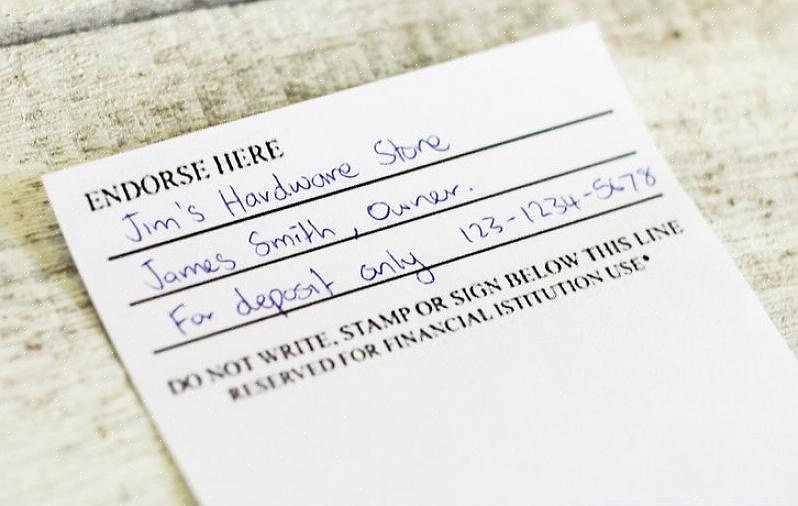 ENDORSE HERE
Jim's Hardware Store
James Smith, Owner.
For deposit only 123-1234-5678
DO NOT WRITE, STAMP OR SIGN BELOW THIS LINE
RESERVED FOR FINANCIAL ISTITUTION USE*